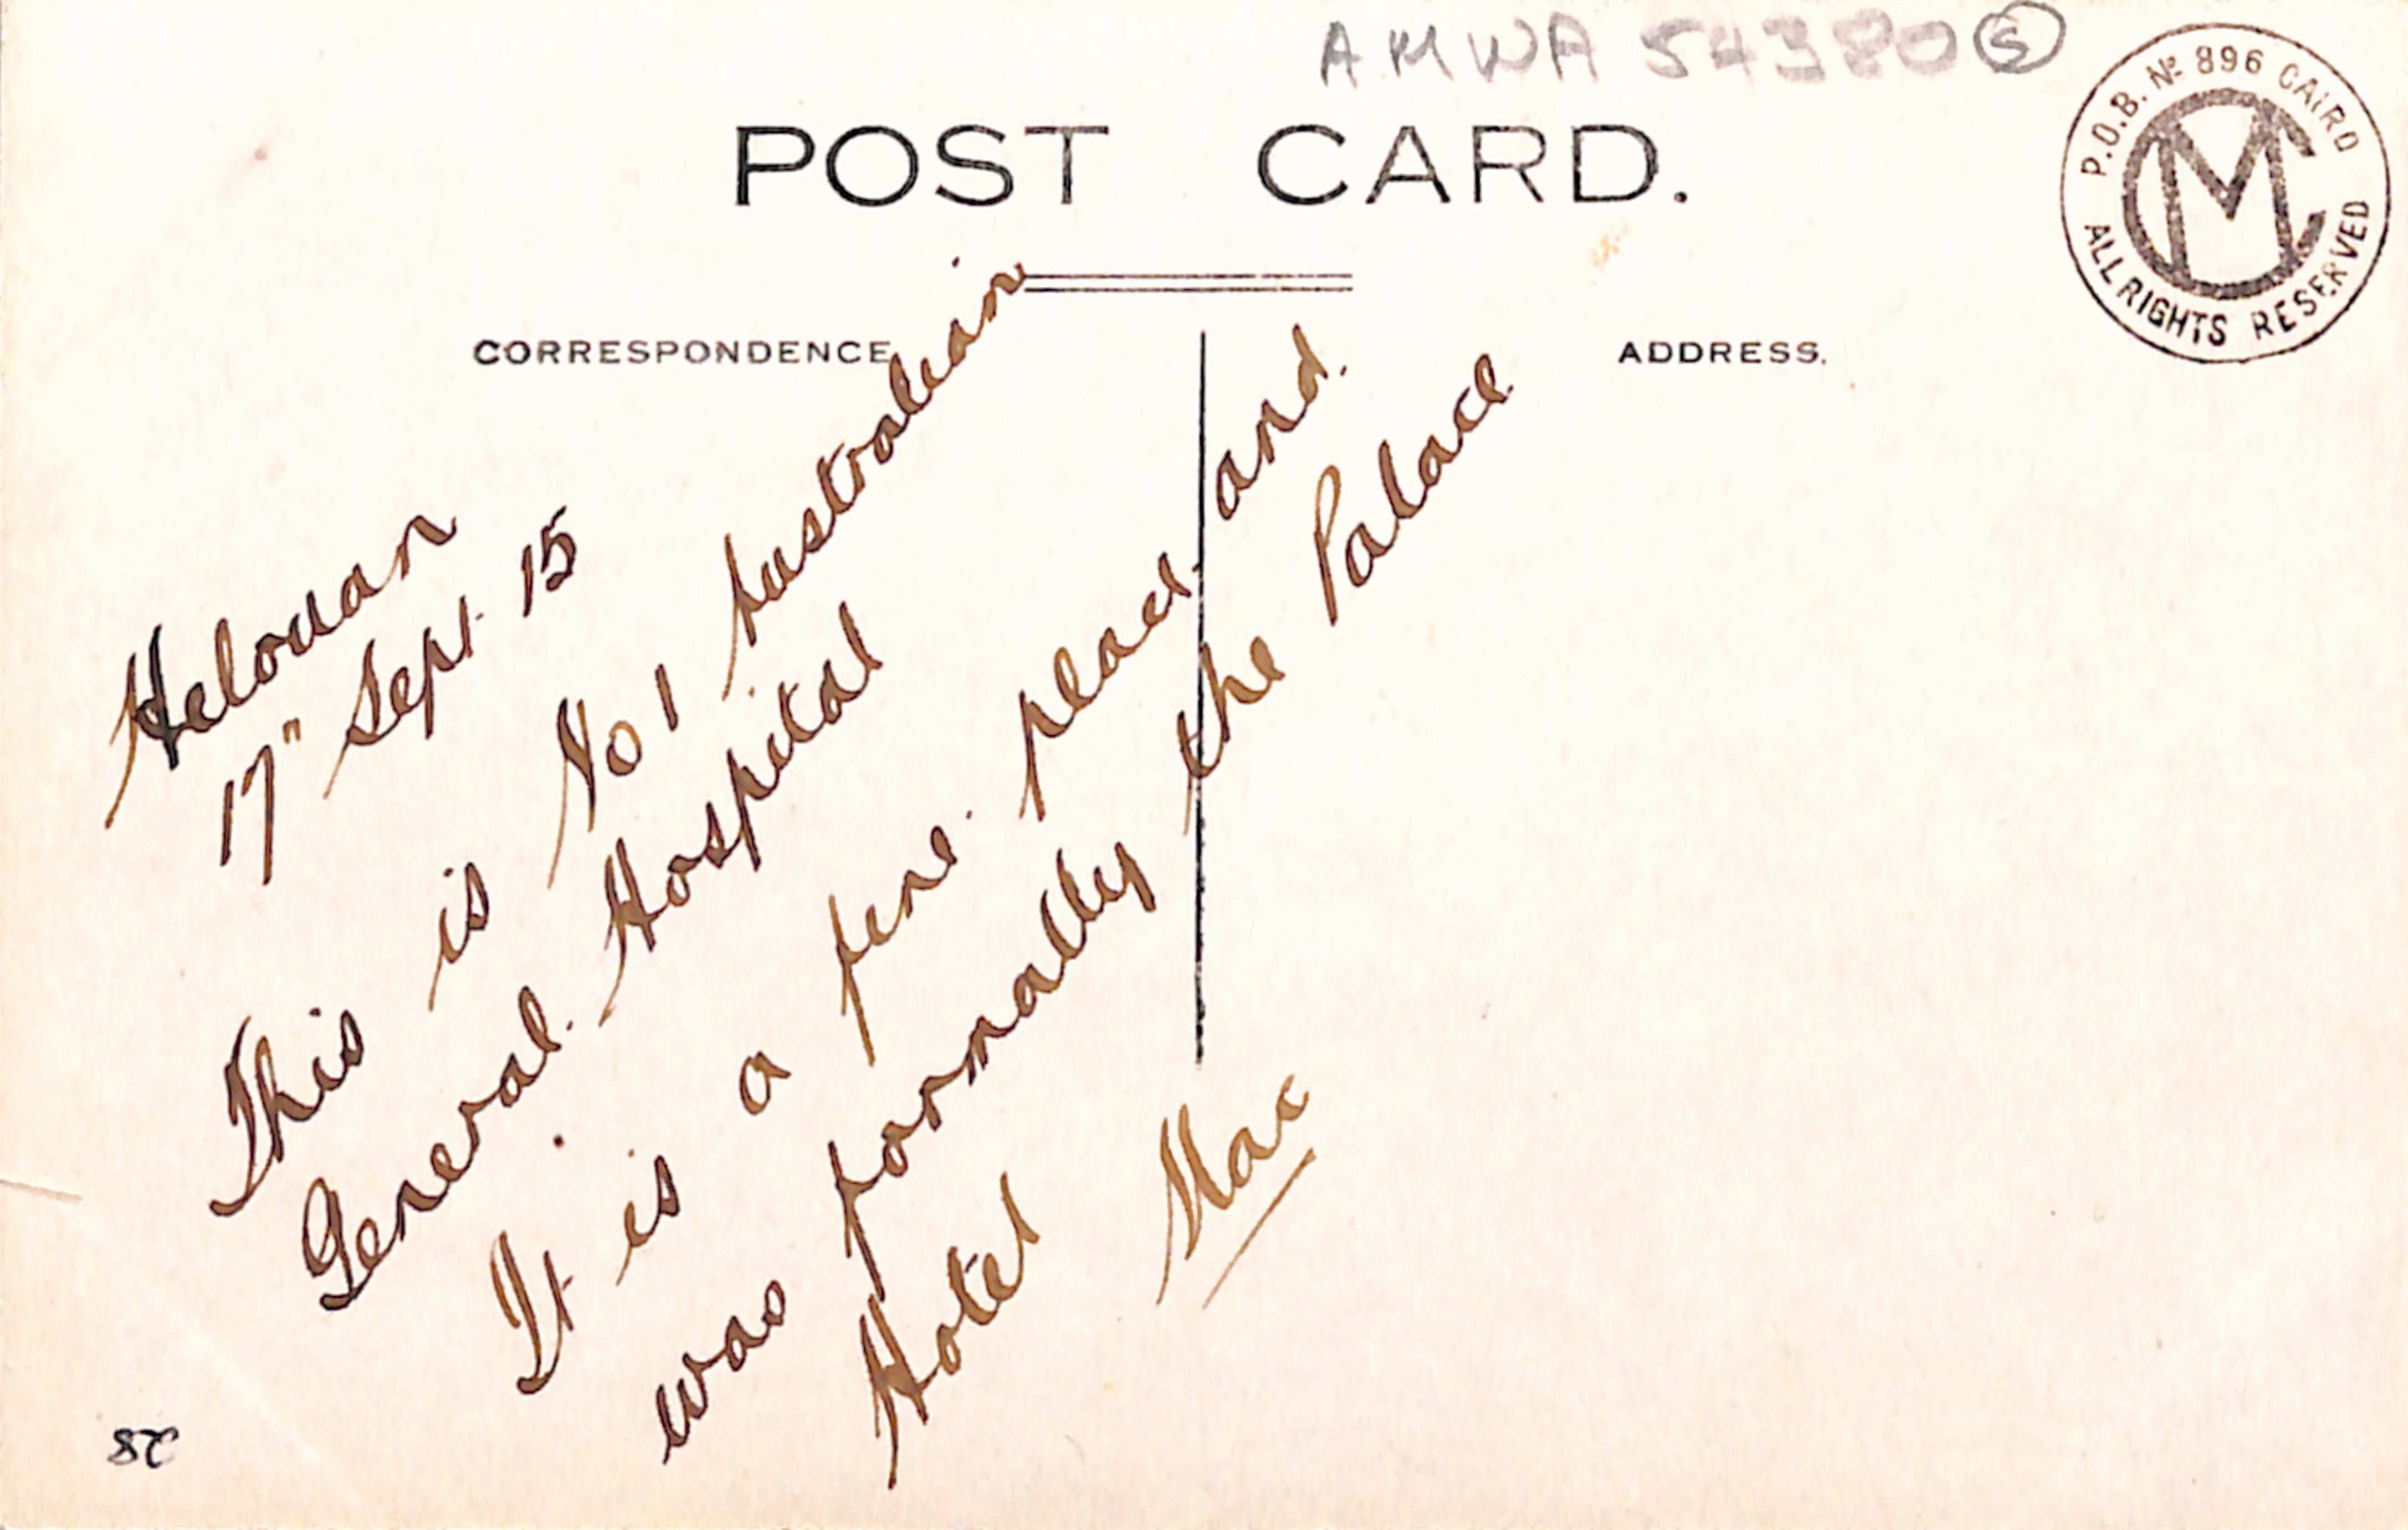 AMWA 54380 S
P.O.B. Nº 896 CAIRO
CM
ALL RIGHTS RESERVED
POST CARD.
CORRESPONDENCE
ADDRESS.
Helouan
17" Sept. 15
This is No 1 Australian
General Hospital
It is a fine place and
was formally the Palace
Hotel
Mac
28